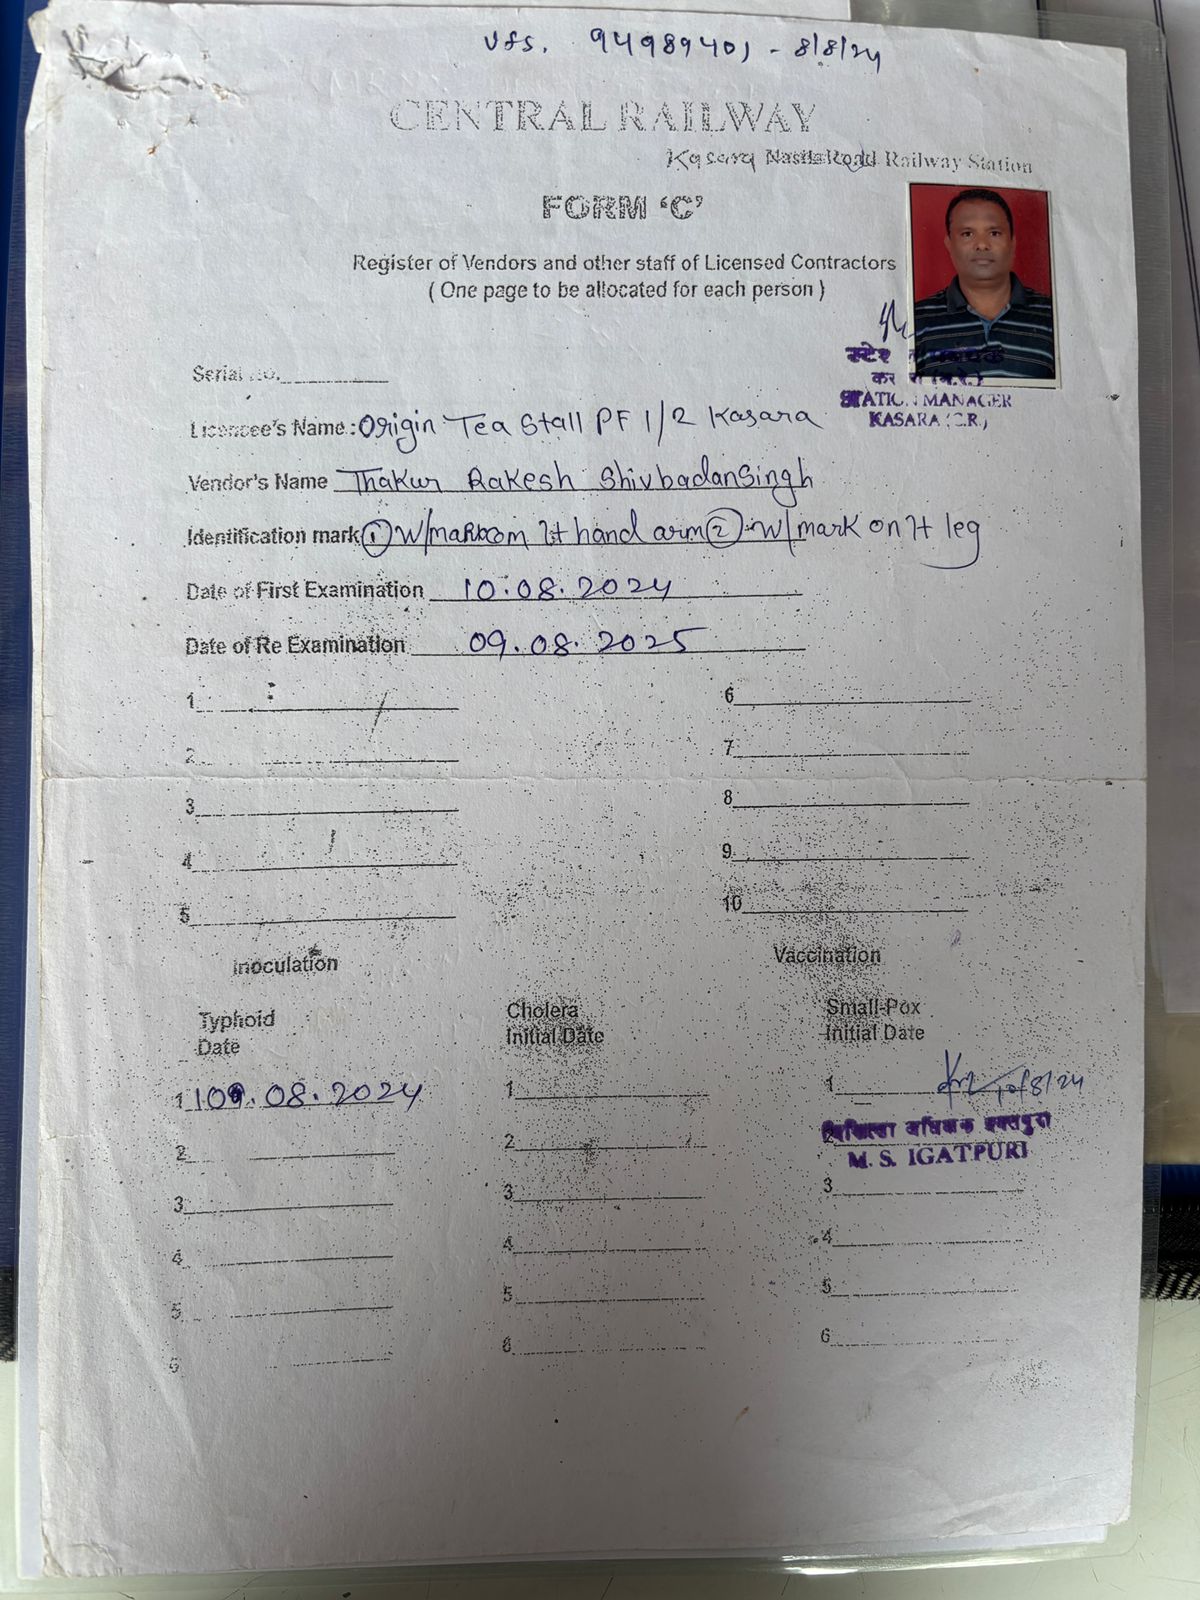 vfs. 94989401 - 8/8/24
CENTRAL RAILWAY
Kasara Nasik Road Railway Station
FORM 'C'
Register of Vendors and other staff of Licensed Contractors
( One page to be allocated for each person )
स्टेशन प्रबंधक
STATION MANAGER
KASARA (C.R.)
Serial No.
Licencee's Name : Origin Tea Stall PF 1/2 Kasara
Vendor's Name Thakur Rakesh Shivbadansingh
Identification mark ① W/mark on lt hand arm ② W/mark on lt leg
Date of First Examination 10.08.2024
Date of Re Examination 09.08.2025
1 6
2 7
3 8
4 9
5 10
Inoculation Vaccination
Typhoid Cholera Small-Pox
Date Initial Date Initial Date
1 09.08.2024 1 1 10/8/24
2 2 2
चिकित्सा अधीक्षक इगतपुरी
M. S. IGATPURI
3 3 3
4 4 4
5 5 5
6 6 6